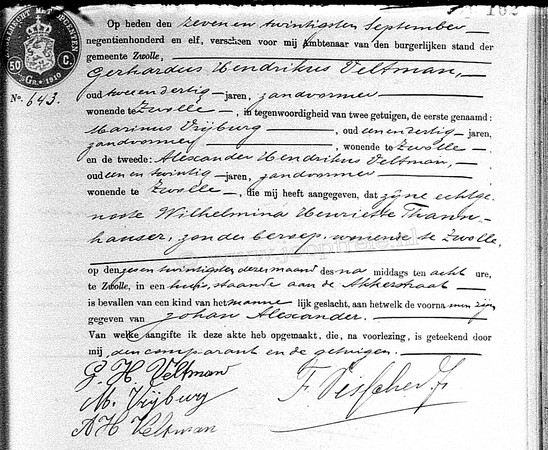 162
ZEGELRECHT MET OPCENTEN
50 C.
1910
No. 643.
Op heden den zeven en twintigsten September
negentienhonderd en elf, verscheen voor mij Ambtenaar van den burgerlijken stand der
gemeente Zwolle,
Gerhardus Hendrikus Veltman,
oud twee en dertig jaren, zandvormer
wonende te Zwolle, in tegenwoordigheid van twee getuigen, de eerste genaamd:
Marinus Vrijburg, oud een en dertig jaren,
zandvormer, wonende te Zwolle
en de tweede: Alexander Hendrikus Veltman,
oud een en twintig jaren, zandvormer
wonende te Zwolle, die mij heeft aangegeven, dat zijne echtge-
noote Wilhelmina Henriette Thann-
hauser, zonder beroep, wonende te Zwolle,
op den zes en twintigsten dezer maand des na middags ten acht ure,
te Zwolle, in een huis, staande aan de Akkerstraat
is bevallen van een kind van het manne lijk geslacht, aan hetwelk de voorna men zijn
gegeven van Johan Alexander.
Van welke aangifte ik deze akte heb opgemaakt, die, na voorlezing, is geteekend door
mij den comparant en de getuigen.
G. H. Veltman
M. Vrijburg
A H Veltman